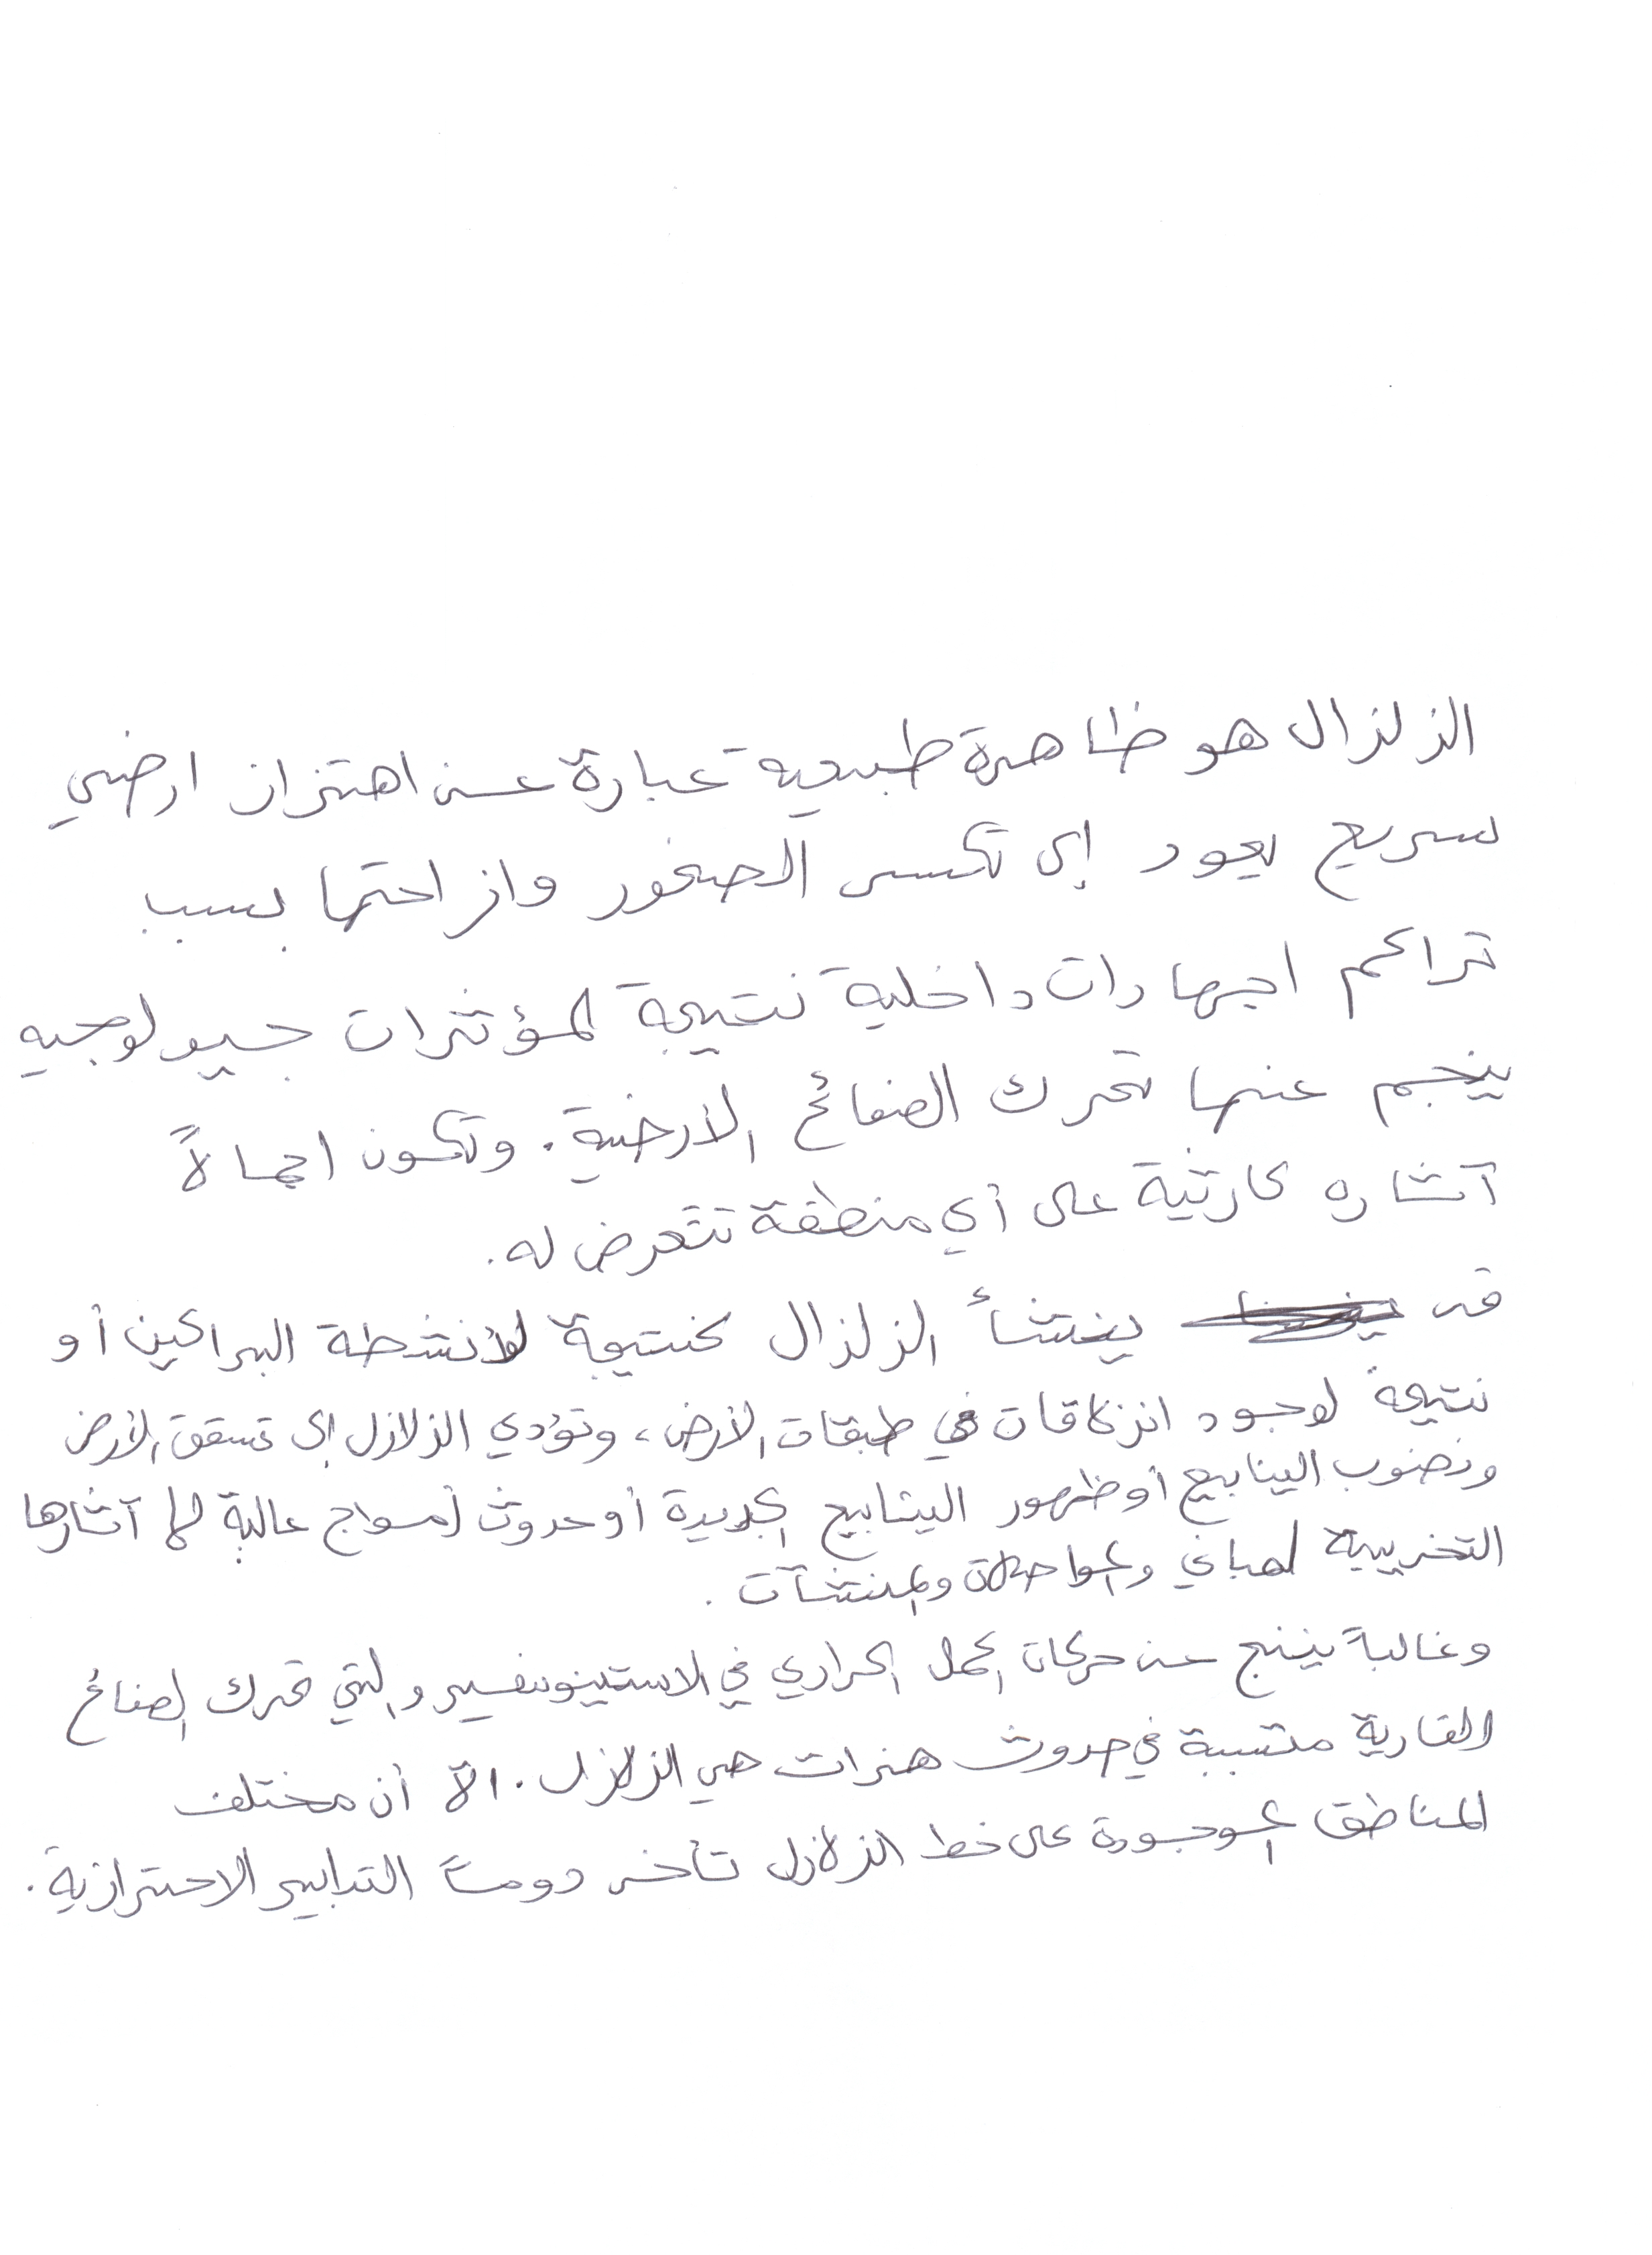 الزلزال هو ظاهرة طبيعيه عبارة عن اهتزاز ارضي
سريع يعود إلى تكسر الصخور وازاحتها بسبب
تراكم اجهادات داخلية نتيجة لمؤثرات جيولوجيه
ينجم عنها تحرك الصفائح الأرضية. وتكون اجمالاً
آثاره كارثية على أي منطقة تتعرض له.
قد ينشأ الزلزال كنتيجة لأنشطة البراكين أو
نتيجة لوجود انزلاقات في طبقات الأرض، وتؤدي الزلازل إلى تشقق الأرض
ونضوب الينابيع أو ظهور الينابيع الجديدة أو حدوث أمواج عالية لها آثارها
التخريبية لمباني والمواصلات والمنشآت.
وغالبة ينتج عن حركات الحمل الحراري في الاستينوسفير والتي تحرك الصفائح
القارية متسببة في حدوث هزات هي الزلازل. الا أن مختلف
المناطق الموجودة على خط الزلازل تأخذ دوماً التدابير الاحترازية.